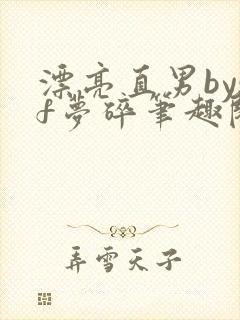 漂亮直男by
f夢碎笔趣阁
弄雪天子